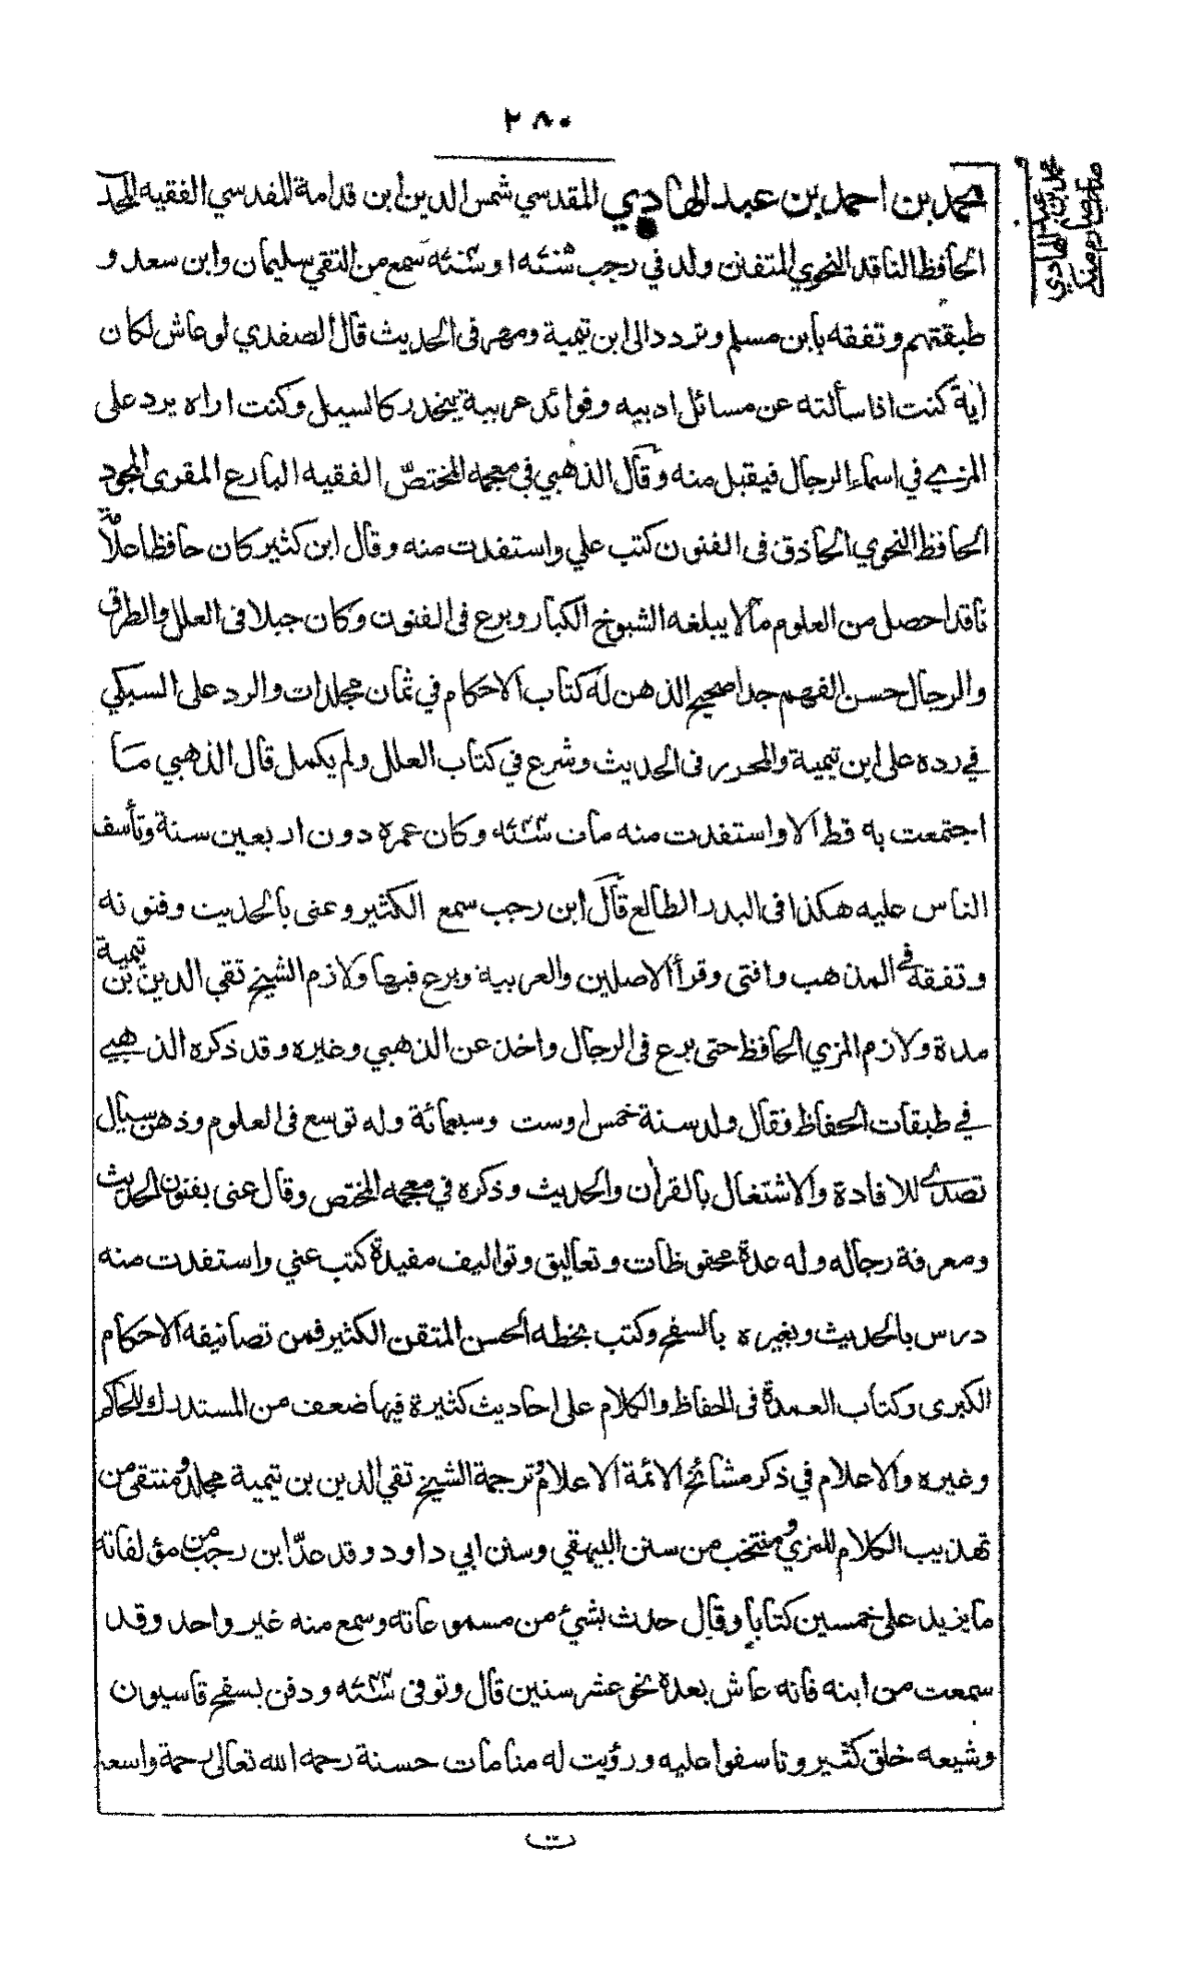 ٢٨٠
محمد بن احمد بن عبد الهادي المقدسي شمس الدين ابن قدامة المقدسي الفقيه المحدث
الحافظ الناقد النحوي المتفنن ولد في رجب او سمع من التقي سليمان وابن سعد و
طبقتهم وتفقه بابن مسلم وتردد الى ابن تيمية ومهر فى الحديث قال الصفدي لو عاش لكان
اية كنت اذا سألته عن مسائل ادبيه وفوائد عربية ينحدر كالسيل وكنت اراه يرد على
المزي في اسماء الرجال فيقبل منه وقال الذهبي في معجمه المختصّ الفقيه البارع المقرى المجود
الحافظ النحوي الحاذق فى الفنون كتب علي واستفدت منه وقال ابن كثير كان حافظا علّامة
ناقدا حصل من العلوم مالا يبلغه الشيوخ الكبار وبرع فى الفنون وكان جبلا فى العلل والطرق
والرجال حسن الفهم جدا صحيح الذهن له كتاب الاحكام في ثمان مجلدات والرد على السبكي
في رده على ابن تيمية والمحرر فى الحديث وشرع في كتاب العلل ولم يكمل قال الذهبي ما
اجتمعت به قط الا واستفدت منه مات وكان عمره دون اربعين سنة وتأسف
الناس عليه هكذا فى البدر الطالع قال ابن رجب سمع الكثير وعنى بالحديث وفنونه
وتفقه في المذهب وافتى وقرأ الاصلين والعربية وبرع فيها ولازم الشيخ تقي الدين بن تيمية
مدة ولازم المزي الحافظ حتى برع فى الرجال واخذ عن الذهبي وغيره وقد ذكره الذهبي
في طبقات الحفاظ فقال ولد سنة خمس او ست وسبعمائة وله توسع فى العلوم وذهن سيال
تصدى للافادة والاشتغال بالقرأن والحديث وذكره في معجمه المختص وقال عنى بفنون الحديث
ومعرفة رجاله وله عدة محفوظات وتعاليق وتواليف مفيدة كتب عني واستفدت منه
درس بالحديث وبغيره بالسفح وكتب بخطه الحسن المتقن الكثير فمن تصانيفه الاحكام
الكبرى وكتاب العمدة فى الحفاظ والكلام على احاديث كثيرة فيها ضعف من المستدرك للحاكم
وغيره والاعلام في ذكر مشائخ الائمة الاعلام وترجمة الشيخ تقي الدين بن تيمية مجلد ومنتقى من
تهذيب الكلام للمزي ومنتخب من سنن البيهقي وسنن ابي داود وقد عدّ ابن رجب من مؤلفاته
ما يزيد على خمسين كتابا وقال حدث بشئ من مسموعاته وسمع منه غير واحد وقد
سمعت من ابنه فانه عاش بعده نحو عشر سنين قال وتوفى ودفن بسفح قاسيون
وشيعه خلق كثير وتاسفوا عليه ورؤيت له منامات حسنة رحمه الله تعالى رحمة واسعة
ت